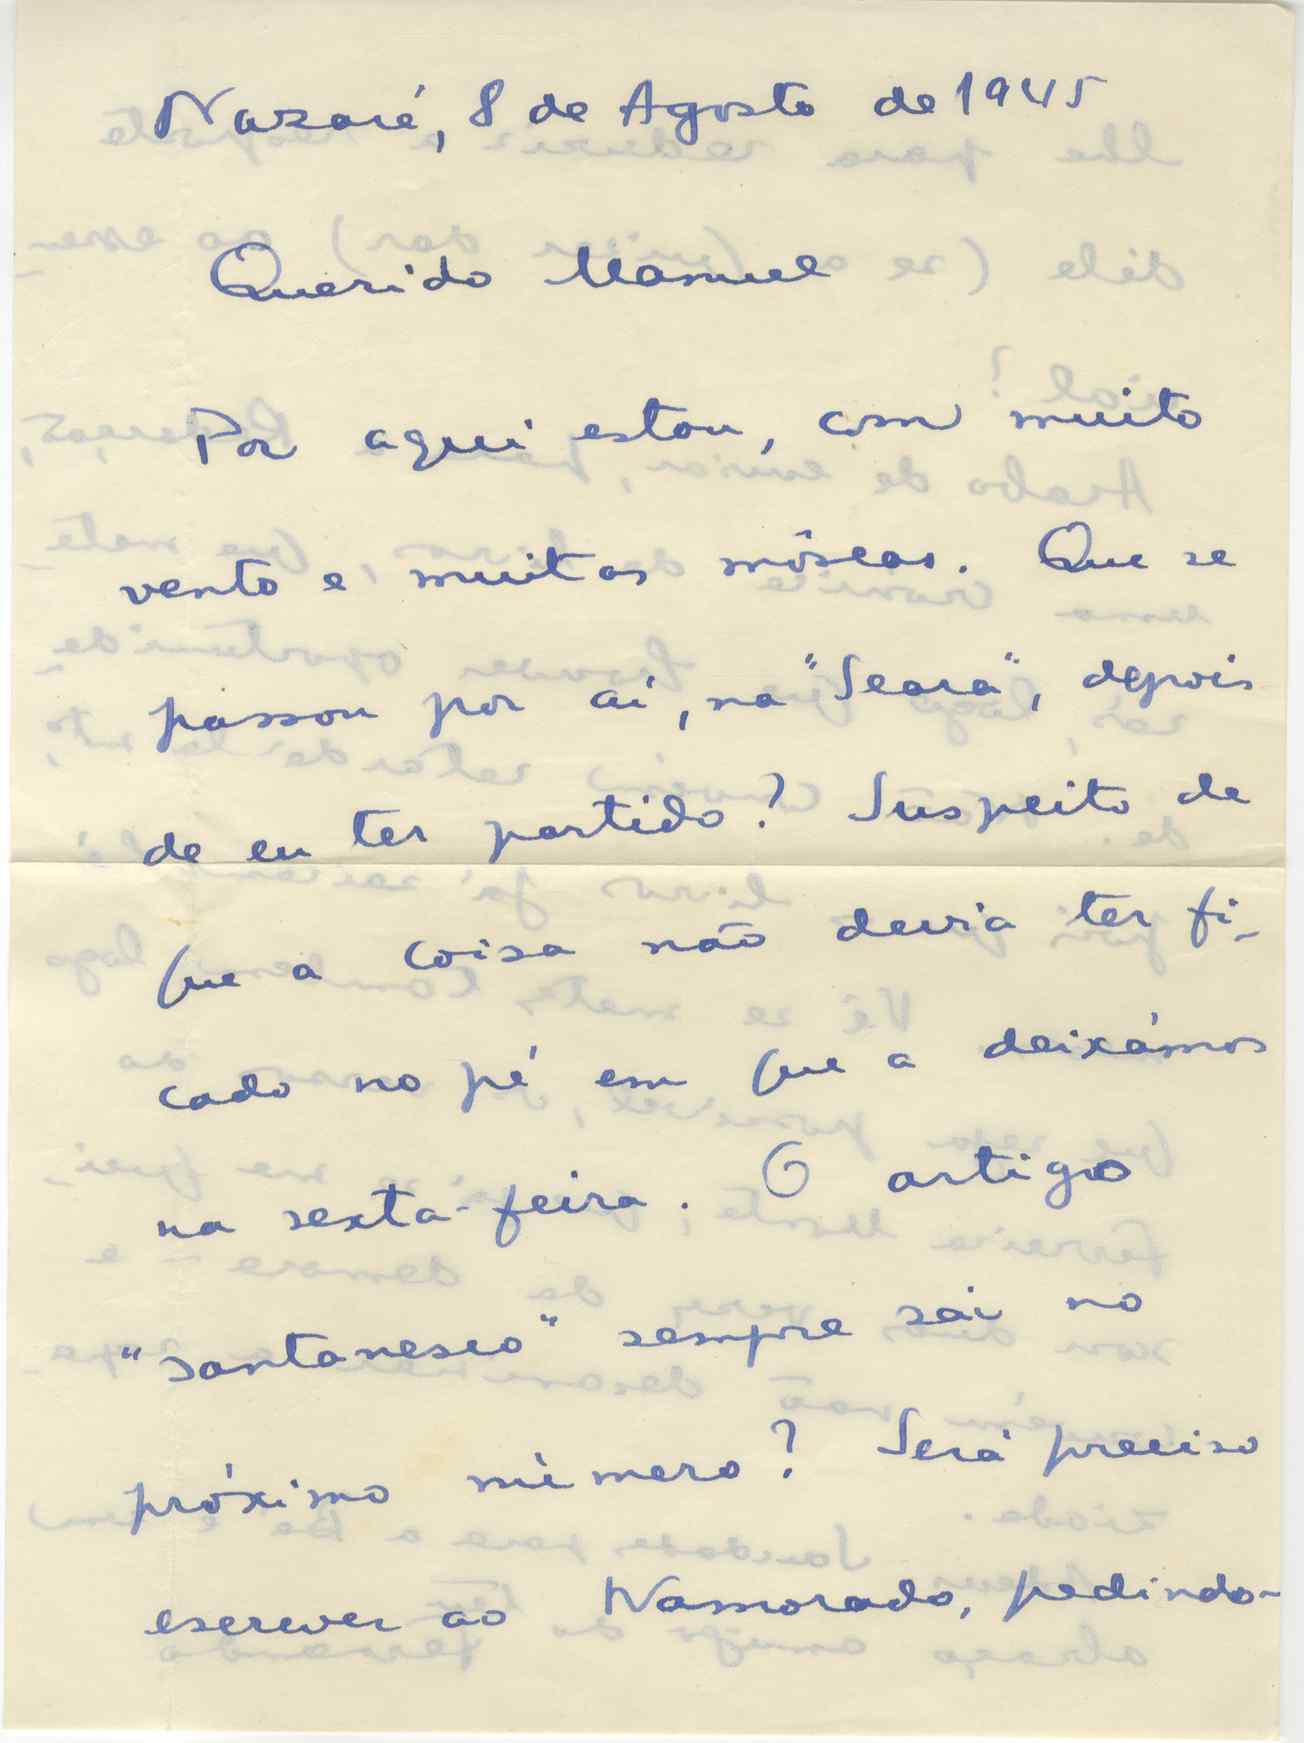 Nazaré, 8 de Agosto de 1945
Querido Manuel
Por aqui estou, com muito
vento e muitas môscas. Que se
passou por aí, na "Seara", depois
de eu ter partido? Suspeito de
que a coisa não devia ter fi-
cado no pé em que a deixámos
na sexta-feira. O artigo
"santanesco" sempre sai no
próximo número? Será preciso
escrever ao Namorado, pedindo-